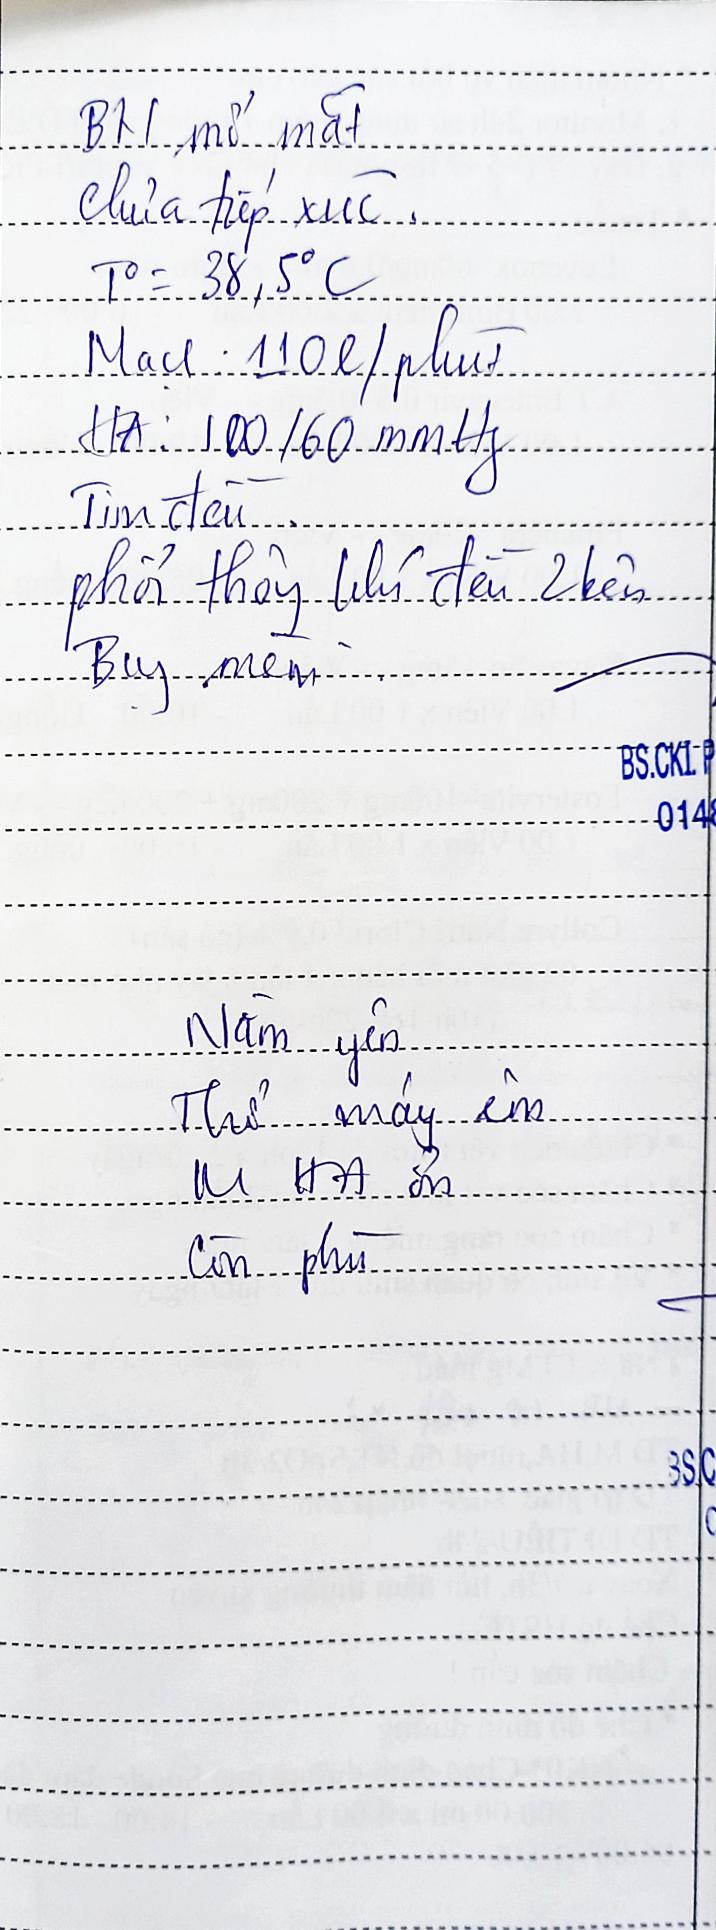 BN mở mắt
chưa tiếp xúc.
T° = 38,5°C
Mạch: 110 l/phút
HA: 100/60 mmHg
Tim đều.
phổi thông khí đều 2 bên
Bụng mềm.
BS.CKI. P
0148
Nằm yên
Thở máy êm
M HA ổn
Còn phù
BS.C